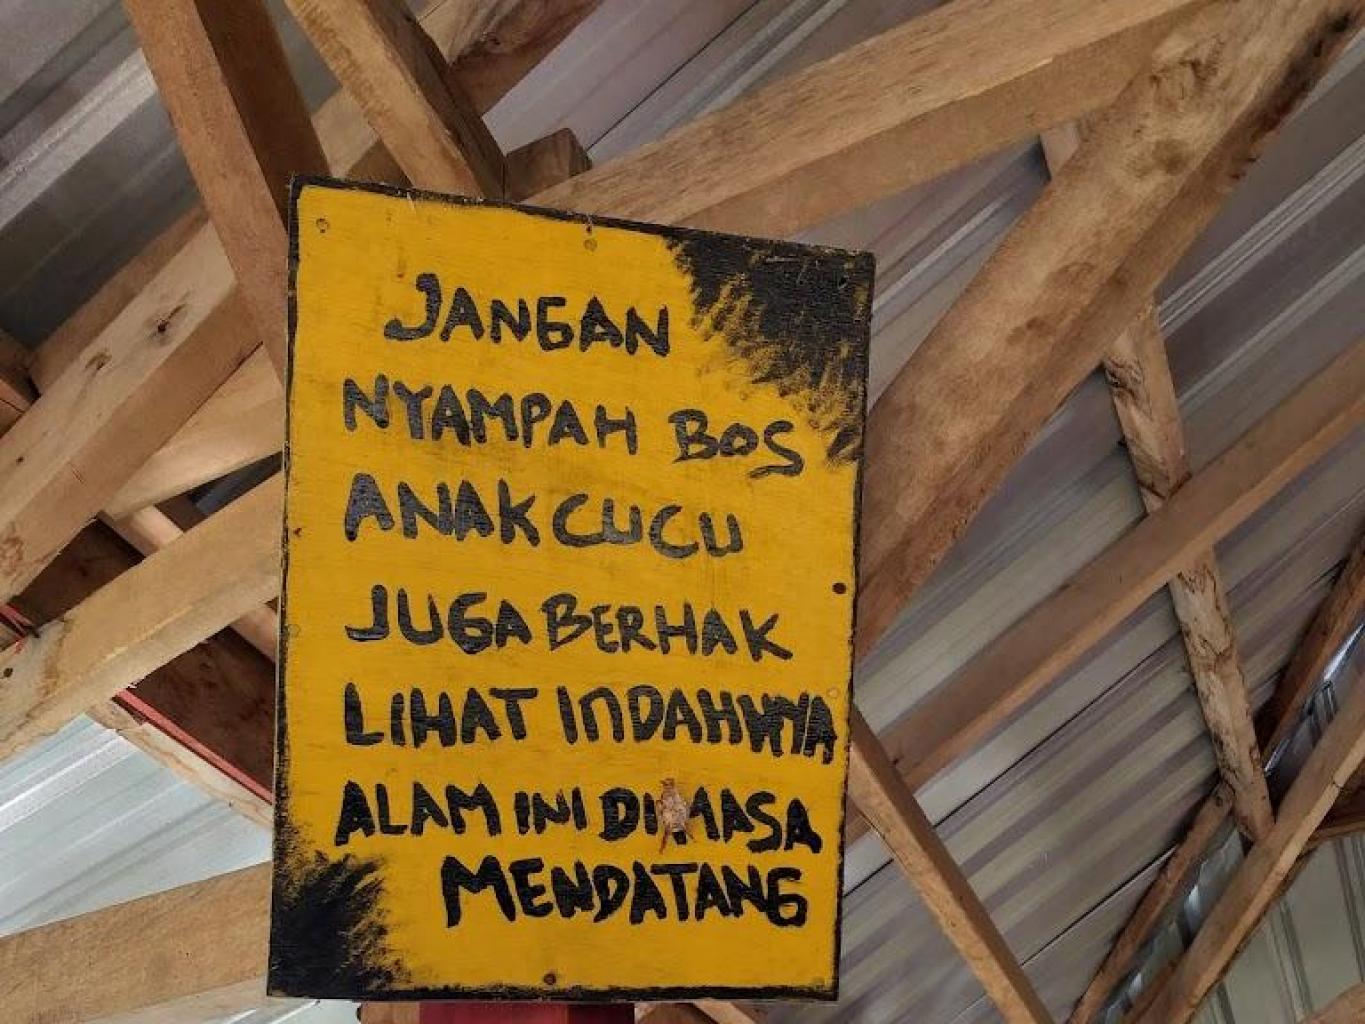 JANGAN
NYAMPAH BOS
ANAK CUCU
JUGA BERHAK
LIHAT INDAHNYA
ALAM INI DI MASA
MENDATANG